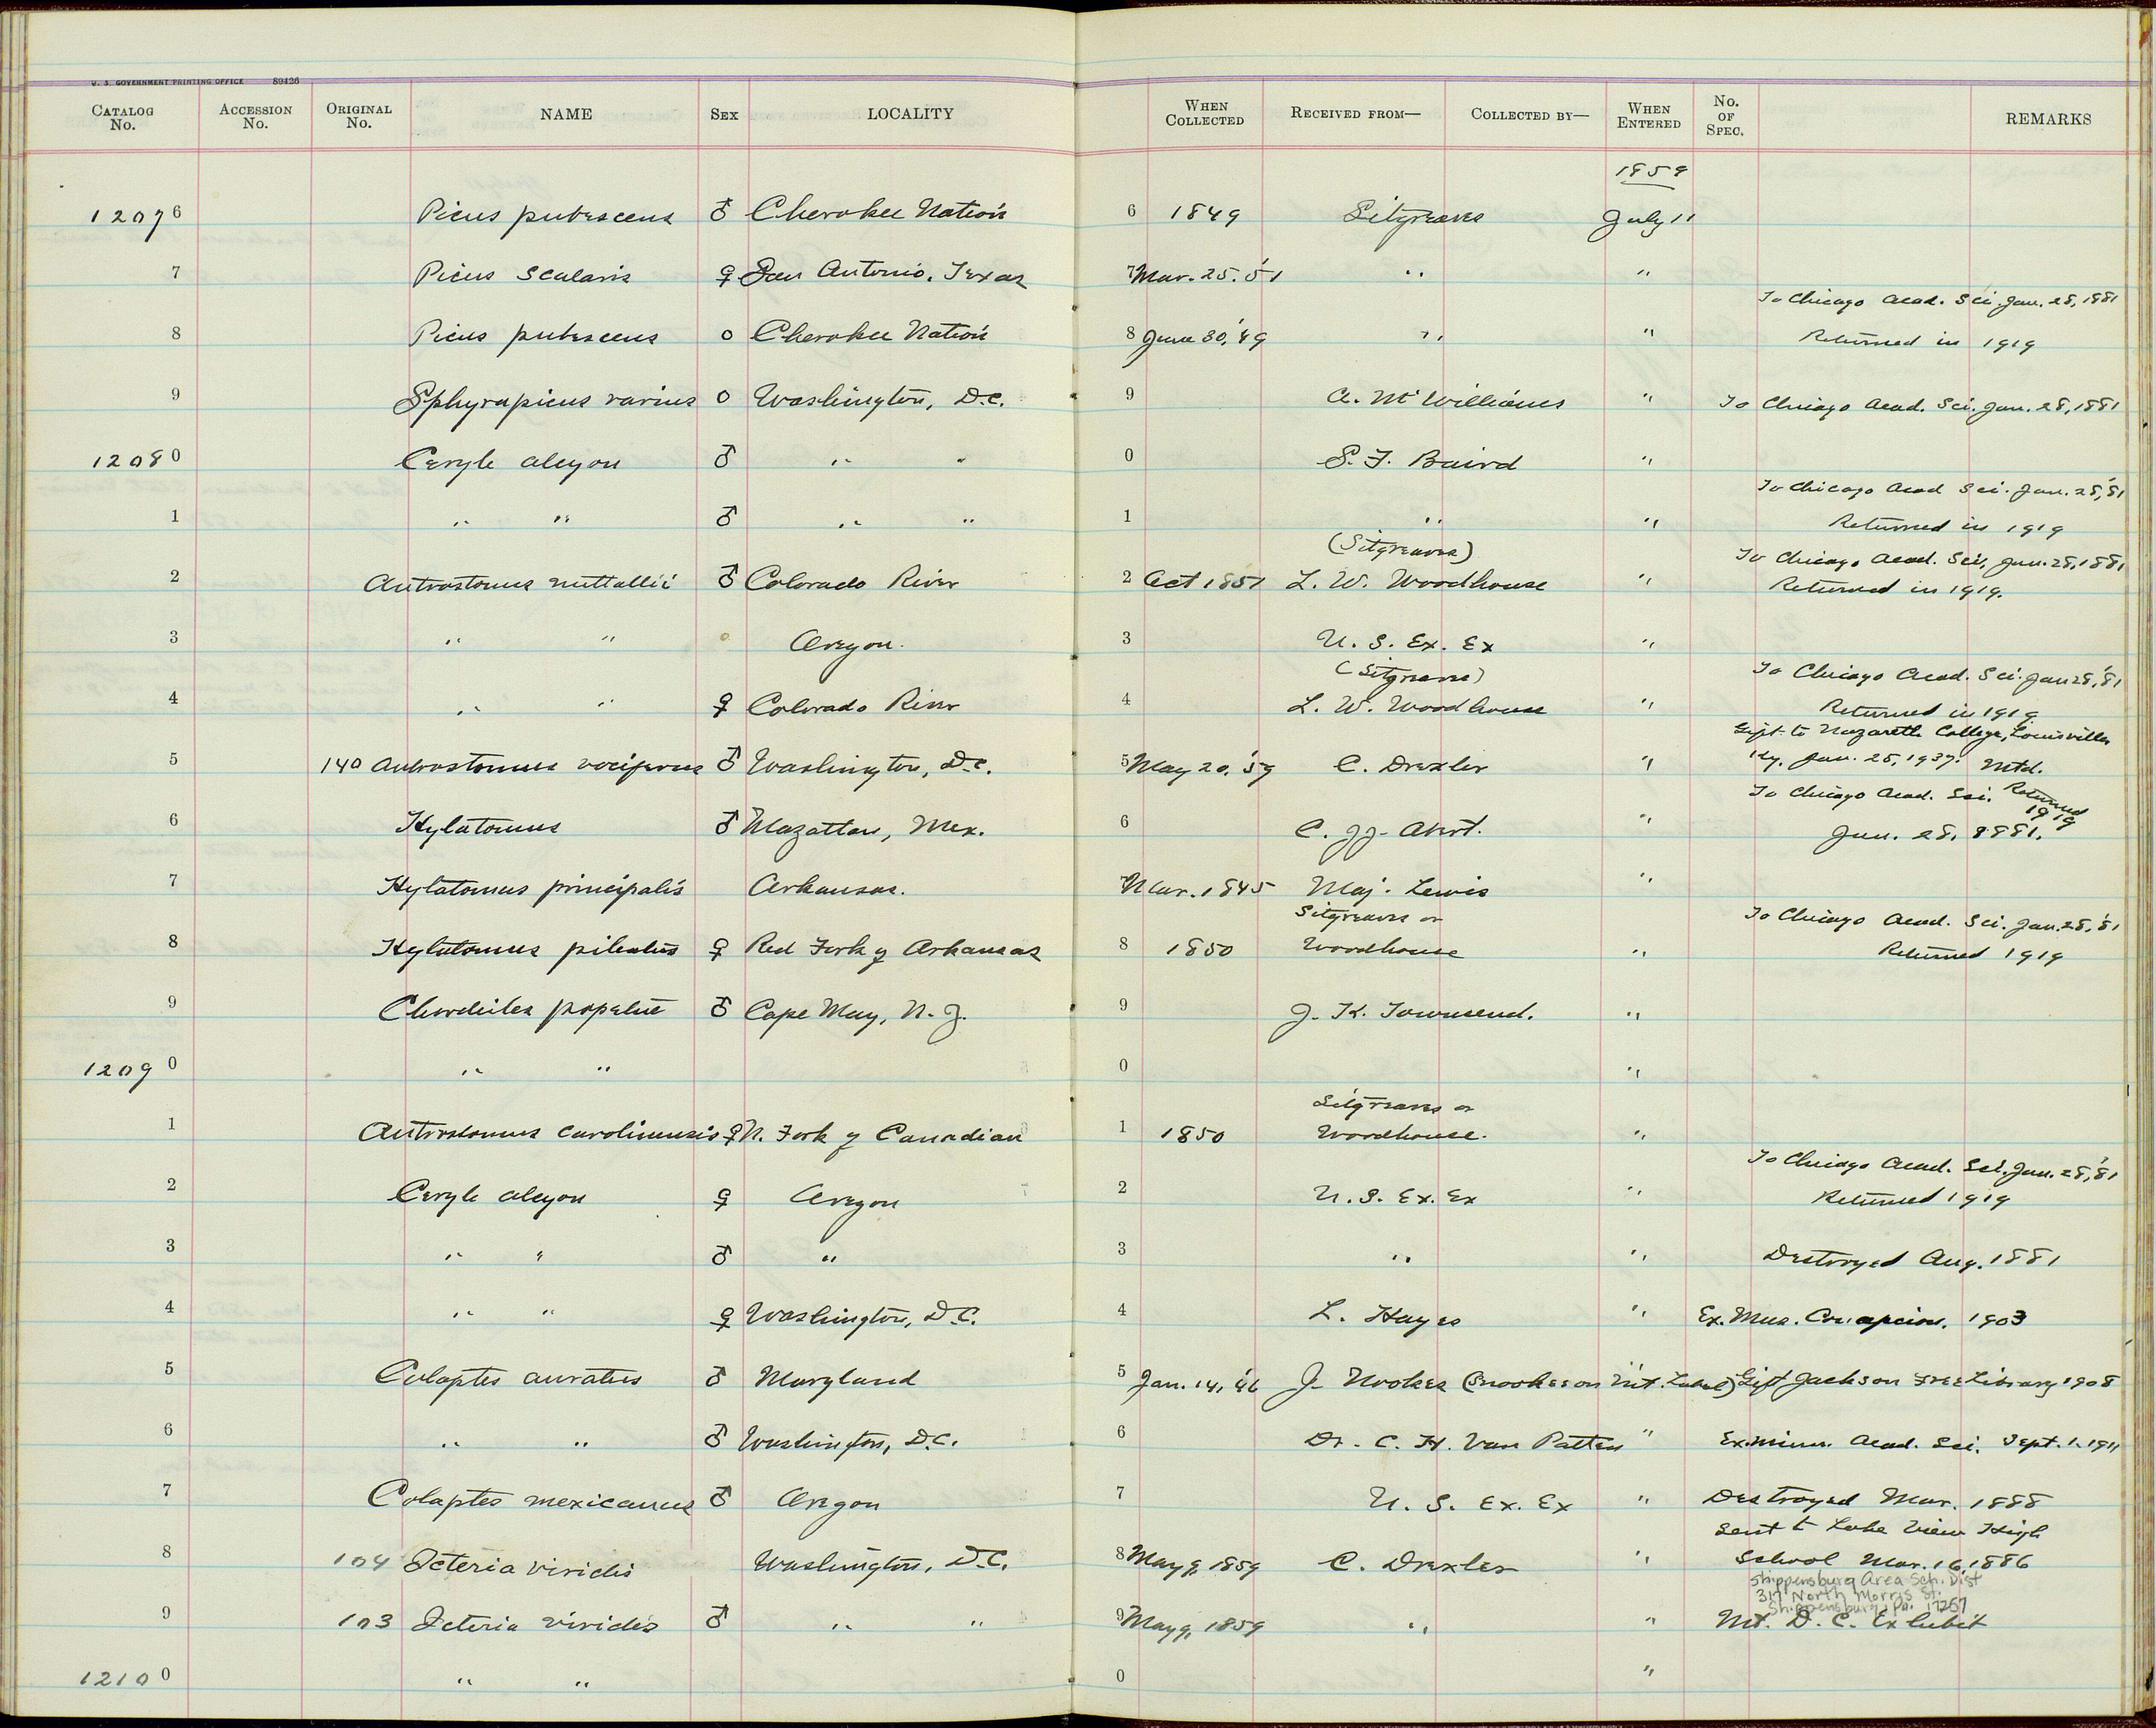 W. S. GOVERNMENT PRINTING OFFICE 89426
CATALOG No. ACCESSION No. ORIGINAL No. NAME SEX LOCALITY WHEN COLLECTED RECEIVED FROM— COLLECTED BY— WHEN ENTERED No. OF SPEC. REMARKS
1859
12076 Picus pubescens ♂ Cherokee Nation 6 1849 Sitgreaves July 11
7 Picus scalaris ♀ San Antonio, Texas 7 Mar. 25. '51 " "
To Chicago Acad. Sci. Jan. 28, 1881
8 Picus pubescens o Cherokee Nation 8 June 30, '49 " " Returned in 1919
9 Sphyrapicus varius o Washington, D.C. 9 A. McWilliams " To Chicago Acad. Sci. Jan. 28, 1881
12080 Ceryle alcyon ♂ " " 0 S. F. Baird "
To Chicago Acad Sci. Jan. 28, '81
1 " " ♂ " " 1 " " Returned in 1919
(Sitgreaves) To Chicago Acad. Sci. Jan. 28, 1881
2 Antrostomus nuttallii ♂ Colorado River 2 Oct 1851 L. W. Woodhouse " Returned in 1919.
3 " " o Oregon. 3 U. S. Ex. Ex "
(Sitgreaves) To Chicago Acad. Sci. Jan 28, '81
4 " " ♀ Colorado River 4 L. W. Woodhouse " Returned in 1919
Gift to Nazareth College, Louisville
5 140 Antrostomus vociferus ♂ Washington, D.C. 5 May 20, '59 C. Drexler " Ky. Jan. 25, 1937. Mtd.
To Chicago Acad. Sci. Returned 1919
6 Hylatomus ♂ Mazatlan, Mex. 6 C. Abert. " Jan. 28, 1881.
7 Hylatomus principalis Arkansas. 7 Mar. 1845 Maj. Lewis "
Sitgreaves or To Chicago Acad. Sci. Jan. 28, '81
8 Hylatomus pileatus ♀ Red Fork of Arkansas 8 1850 Woodhouse " Returned 1919
9 Chordeiles popetue ♂ Cape May, N. J. 9 J. K. Townsend. "
12090 " " 0 "
Sitgreaves or
1 Antrostomus carolinensis ♀ N. Fork of Canadian 1 1850 Woodhouse. "
To Chicago Acad. Sci. Jan. 28, '81
2 Ceryle alcyon ♀ Oregon 2 U. S. Ex. Ex " Returned 1919
3 " " ♂ " 3 " " Destroyed Aug. 1881
4 " " ♀ Washington, D.C. 4 L. Hayes " Ex. Mus. Concepcion. 1903
5 Colaptes auratus ♂ Maryland 5 Jan. 14, '46 J. Nookes (Snookes on Mt. Label) " Gift Jackson Free Library 1908
6 " " ♂ Washington, D.C. 6 Dr. C. H. Van Patten " Ex. Minn. Acad. Sci. Sept. 1. 1911
7 Colaptes mexicanus ♂ Oregon 7 U. S. Ex. Ex " Destroyed Mar. 1888
Sent to Lake View High
8 104 Icteria viridis Washington, D.C. 8 May 9, 1859 C. Drexler " School Mar. 16, 1886
Shippensburg Area Sch. Dist
317 North Morris St.
Shippensburg, Pa. 17257
9 103 Icteria viridis ♂ " " 9 May 9, 1859 " " Mt. D. C. Exhibit
12100 " " 0 "